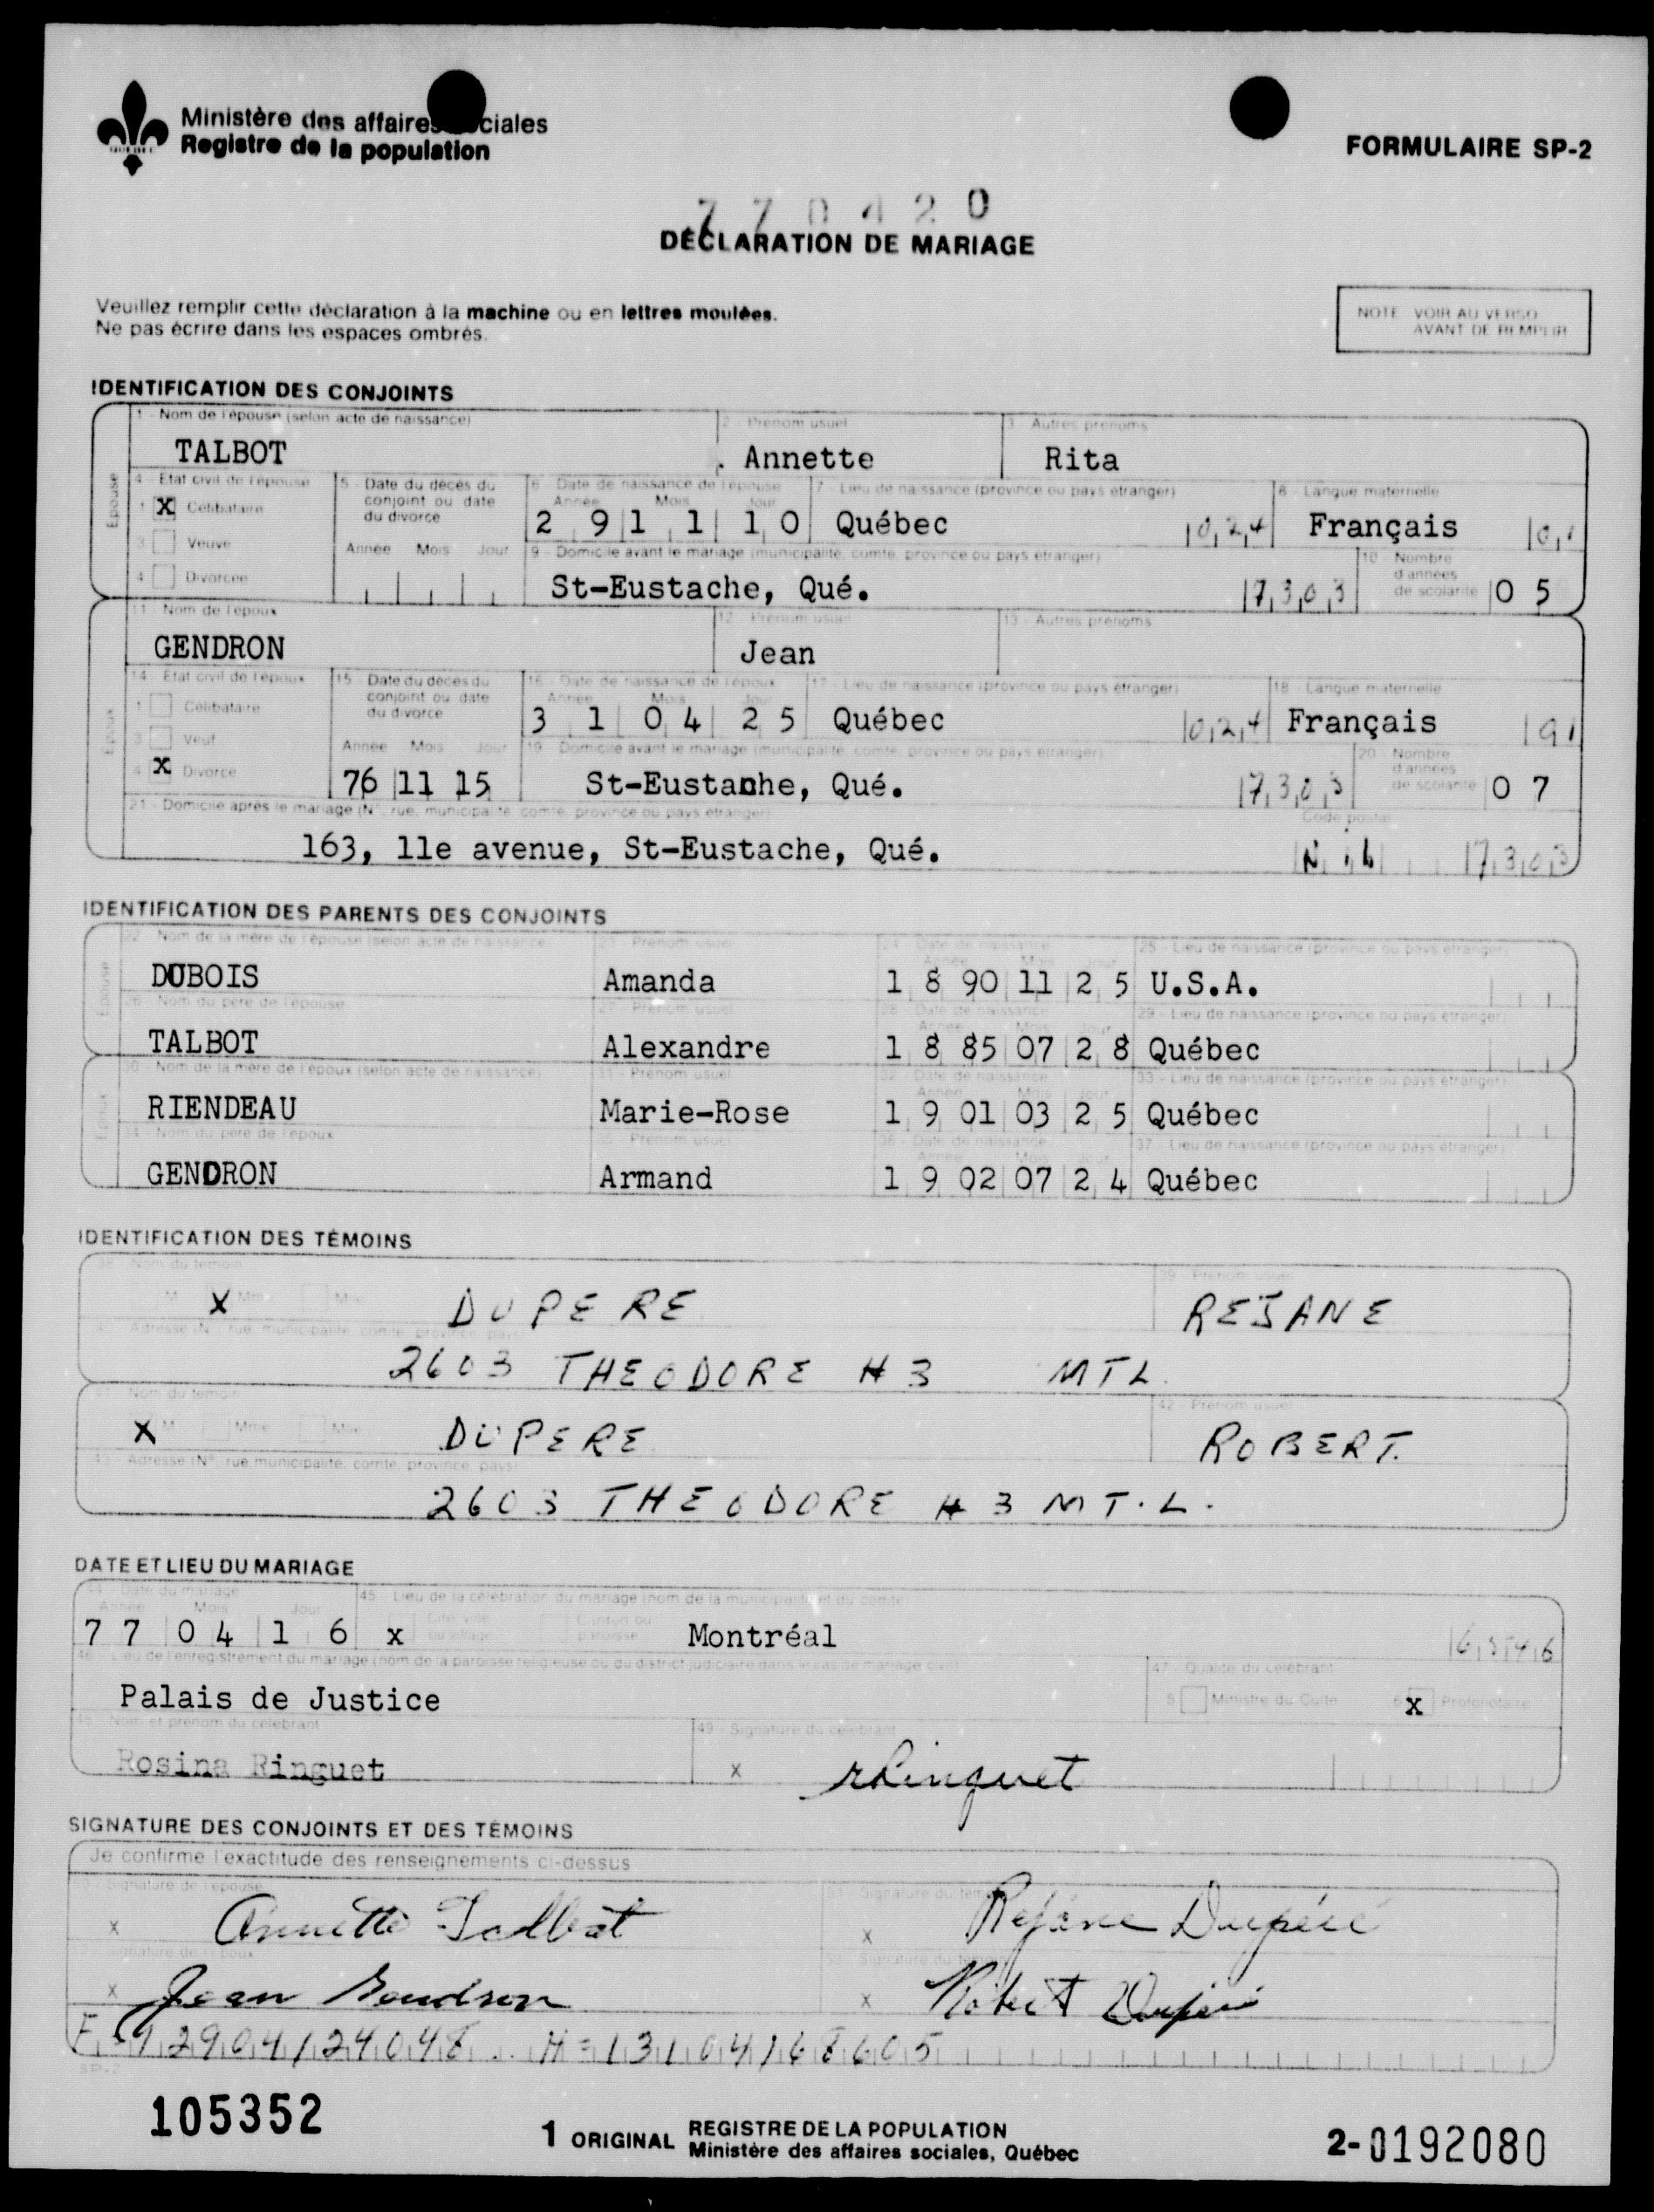 Ministère des affaires sociales
Registre de la population
FORMULAIRE SP-2
770420
DÉCLARATION DE MARIAGE
Veuillez remplir cette déclaration à la machine ou en lettres moulées.
Ne pas écrire dans les espaces ombrés.
NOTE VOIR AU VERSO
AVANT DE REMPLIR
IDENTIFICATION DES CONJOINTS
1 - Nom de l'épouse (selon acte de naissance) 2 - Prénom usuel 3 - Autres prénoms
TALBOT Annette Rita
Épouse
4 - État civil de l'épouse 5 - Date du décès du conjoint ou date du divorce 6 - Date de naissance de l'épouse 7 - Lieu de naissance (province ou pays étranger) 8 - Langue maternelle
Année Mois Jour
1 X Célibataire 2 9 1 1 1 0 Québec 0 2 4 Français
3 Veuve Année Mois Jour 9 - Domicile avant le mariage (municipalité, comté, province ou pays étranger) 10 - Nombre d'années de scolarité
4 Divorcée St-Eustache, Qué. 7 3 0 3 0 5
11 - Nom de l'époux 12 - Prénom usuel 13 - Autres prénoms
GENDRON Jean
Époux
14 - État civil de l'époux 15 - Date du décès du conjoint ou date du divorce 16 - Date de naissance de l'époux 17 - Lieu de naissance (province ou pays étranger) 18 - Langue maternelle
Année Mois Jour
1 Célibataire 3 1 0 4 2 5 Québec 0 2 4 Français
3 Veuf Année Mois Jour 19 - Domicile avant le mariage (municipalité, comté, province ou pays étranger) 20 - Nombre d'années de scolarité
4 X Divorcé 76 11 15 St-Eustache, Qué. 7 3 0 3 0 7
21 - Domicile après le mariage (N°, rue, municipalité, comté, province ou pays étranger) Code postal
163, 11e avenue, St-Eustache, Qué. N i l 7 3 0 3
IDENTIFICATION DES PARENTS DES CONJOINTS
22 - Nom de la mère de l'épouse (selon acte de naissance) 23 - Prénom usuel 24 - Date de naissance 25 - Lieu de naissance (province ou pays étranger)
Épouse
DUBOIS Amanda 1 8 90 11 2 5 U.S.A.
26 - Nom du père de l'épouse 27 - Prénom usuel 28 - Date de naissance 29 - Lieu de naissance (province ou pays étranger)
TALBOT Alexandre 1 8 85 07 2 8 Québec
30 - Nom de la mère de l'époux (selon acte de naissance) 31 - Prénom usuel 32 - Date de naissance 33 - Lieu de naissance (province ou pays étranger)
Époux
RIENDEAU Marie-Rose 1 9 01 03 2 5 Québec
34 - Nom du père de l'époux 35 - Prénom usuel 36 - Date de naissance 37 - Lieu de naissance (province ou pays étranger)
GENDRON Armand 1 9 02 07 2 4 Québec
IDENTIFICATION DES TÉMOINS
38 - Nom du témoin 39 - Prénom usuel
M X Mme Mlle DUPERE REJANE
40 - Adresse (N°, rue, municipalité, comté, province, pays)
2603 THEODORE # 3 MTL.
41 - Nom du témoin 42 - Prénom usuel
X M Mme Mlle DUPERE ROBERT.
43 - Adresse (N°, rue, municipalité, comté, province, pays)
2603 THEODORE # 3 MT.L.
DATE ET LIEU DU MARIAGE
44 - Date du mariage 45 - Lieu de la célébration du mariage (nom de la municipalité et du comté)
Année Mois Jour Cité, ville ou village Canton ou paroisse
7 7 0 4 1 6 x Montréal
46 - Lieu de l'enregistrement du mariage (nom de la paroisse religieuse ou du district judiciaire dans le cas de mariage civil) 47 - Qualité du célébrant
Palais de Justice 5 Ministre du Culte 6 x Protonotaire
48 - Nom et prénom du célébrant 49 - Signature du célébrant
Rosina Ringuet x rRinguet
SIGNATURE DES CONJOINTS ET DES TÉMOINS
Je confirme l'exactitude des renseignements ci-dessus
50 - Signature de l'épouse 51 - Signature du témoin
x Annette Talbot x Réjane Dupéré
52 - Signature de l'époux 53 - Signature du témoin
x Jean Gendron x Robert Dupéré
SP-2
105352
1 ORIGINAL REGISTRE DE LA POPULATION
Ministère des affaires sociales, Québec
2-0192080